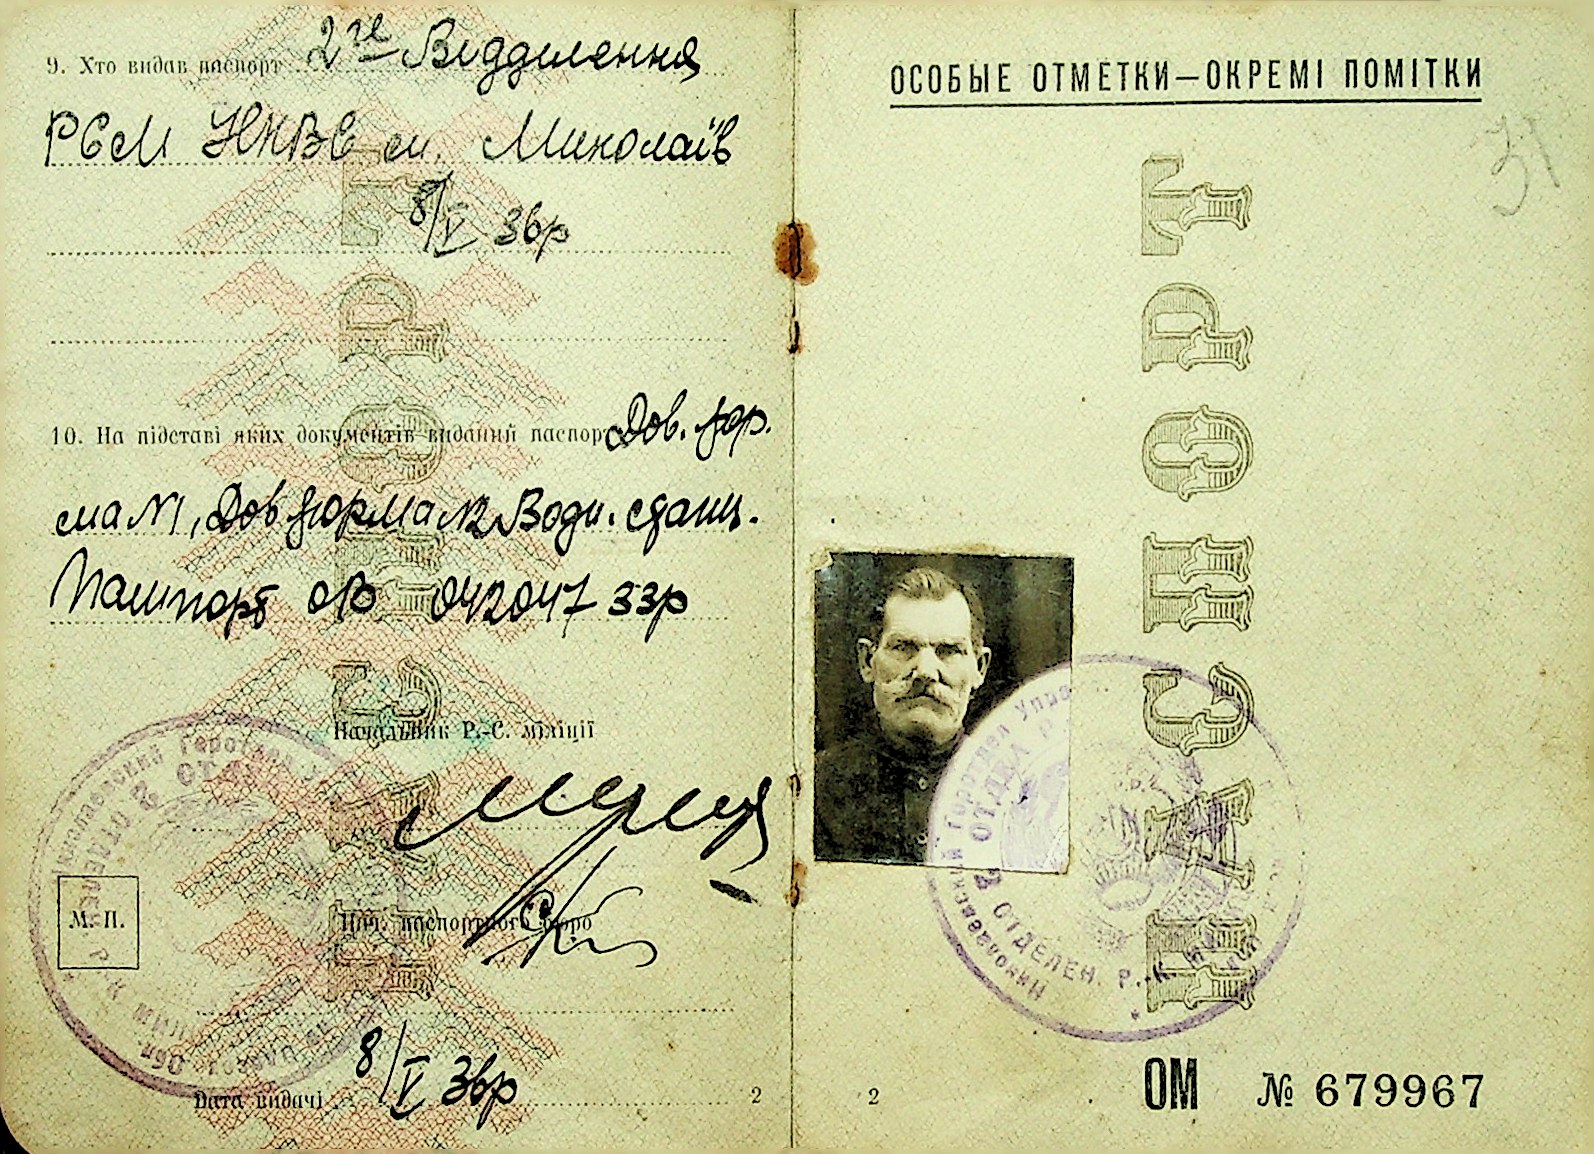 9. Хто видав паспорт 2ге Відділення
РСМ НКВС м. Миколаїв
8/V 36р
10. На підставі яких документів виданий паспорт Дов. фор.
ма №1, Дов форма №2 Водн. станц.
Пашпорт ОВ 042047 33р
Начальник Р.-С. міліції
М. П.
Нач. паспортного бюро
Дата видачі 8/V 36р
2
ОСОБЫЕ ОТМЕТКИ—ОКРЕМІ ПОМІТКИ
31
ПАСПОРТ
Николаевский Городской Управ
2 ОТДЕЛЕН. Р.-К.
2
ОМ № 679967